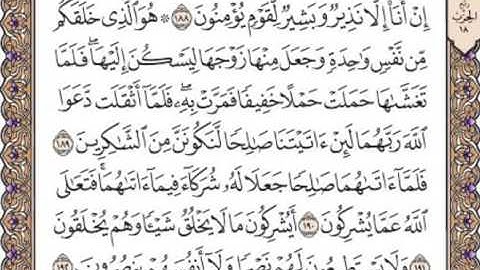 إِنْ أَنَا۠ إِلَّا نَذِيرٌ وَبَشِيرٌ لِّقَوْمٍ يُؤْمِنُونَ ۝١٨٨ ۞ هُوَ ٱلَّذِى خَلَقَكُم
مِّن نَّفْسٍ وَٰحِدَةٍ وَجَعَلَ مِنْهَا زَوْجَهَا لِيَسْكُنَ إِلَيْهَا ۖ فَلَمَّا
تَغَشَّىٰهَا حَمَلَتْ حَمْلًا خَفِيفًا فَمَرَّتْ بِهِۦ ۖ فَلَمَّآ أَثْقَلَت دَّعَوَا
ٱللَّهَ رَبَّهُمَا لَئِنْ ءَاتَيْتَنَا صَٰلِحًا لَّنَكُونَنَّ مِنَ ٱلشَّٰكِرِينَ ۝١٨٩
فَلَمَّآ ءَاتَىٰهُمَا صَٰلِحًا جَعَلَا لَهُۥ شُرَكَآءَ فِيمَآ ءَاتَىٰهُمَا ۚ فَتَعَٰلَى
ٱللَّهُ عَمَّا يُشْرِكُونَ ۝١٩٠ أَيُشْرِكُونَ مَا لَا يَخْلُقُ شَيْـًٔا وَهُمْ يُخْلَقُونَ
۝١٩١ وَلَا يَسْتَطِيعُونَ لَهُمْ نَصْرًا وَلَآ أَنفُسَهُمْ يَنصُرُونَ ۝١٩٢
الحزب
١٨